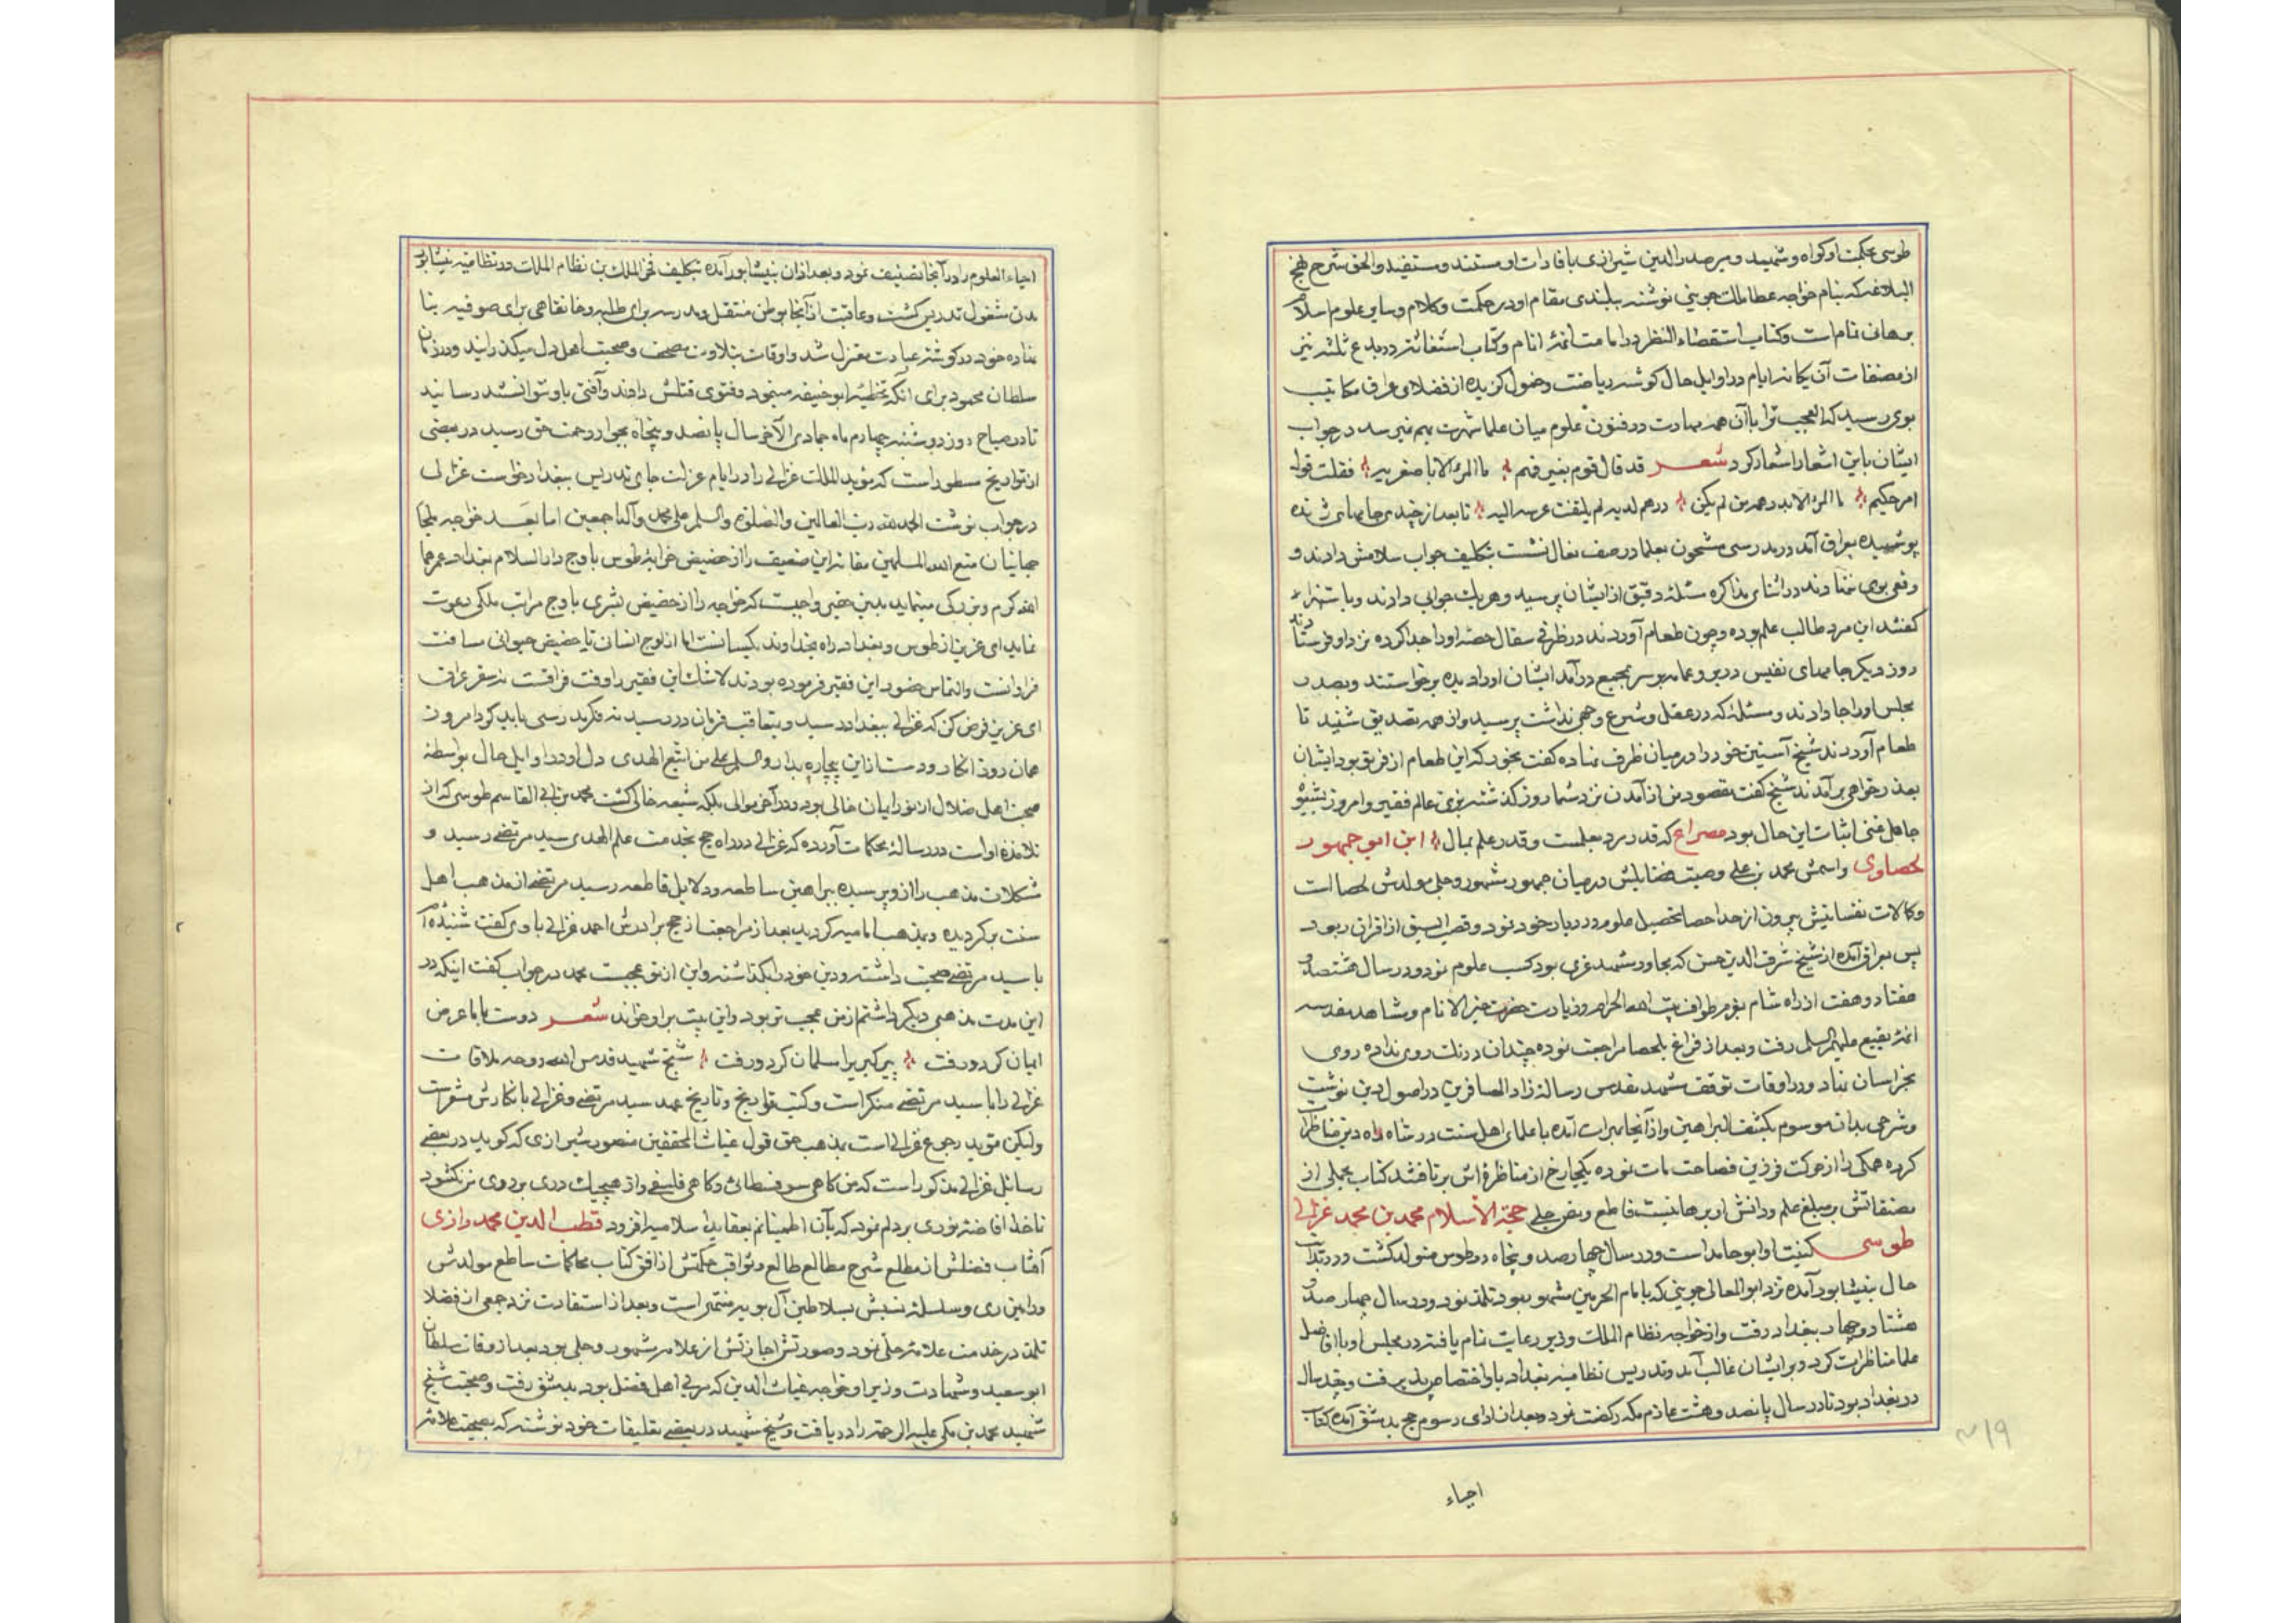 طوسی بحکمت او کواه و شهید و میر صدرالدین شیرازی بافادات او مستند و مستفید والحق شرح نهج
البلاغه که بنام خواجه عطا ملک جوینی نوشته ببلندی مقام او در حکمت و کلام و سایر علوم اسلام
برهانی تمام است و کتاب استقصاء النظر در امامت ائمهٔ انام و کتاب استغاثه در بدع ثلثه نیز
از مصنفات آن یکانه ایام در اوایل حال کوشه ریاضت و خمول کزیده از فضلای عراق مکاتیب
بوی رسید که العجب ترا با آن همه مهارت در فنون علوم میان علما شهرت بهم نمیرسد در جواب
ایشان باین اشعار اشعار کرد شعر قد قال قوم بغیر فهم ما المرء الا باصغریه فقلت قول
امر حکیم ما المرء الا بدرهمیه من لم یکن درهم لدیه لم یلتفت عرسه الیه تا بعد از چندی جامهای ژنده
پوشیده بعراق آمد در مدرسی مشحون بعلما در صف نعال نشست بتکلیف جواب سلامش دادند و
وقعی بوی ننهادند در اثنای مذاکره مسئله دقیق از ایشان پرسید و هر یک جوابی دادند و باستهزاء
کفتند این مرد طالب علم بوده و چون طعام آوردند در ظرفی سفال حصه او را جدا کرده نزد او فرستادند
روز دیکر جامهای نفیس در بر و عمامه بر سر بمجمع در آمد ایشان او را دیده برخواستند و بصدر
مجلس او را جا دادند و مسئله که در عقل و شرع وجهی نداشت پرسید و از همه تصدیق شنید تا
طعام آوردند شیخ آستین خود را در میان ظرف نهاده کفت بخور که این طعام از فریق بود ایشان
بعذر خواهی برآمدند شیخ کفت مقصود من از آمدن نزد شما روز کذشته بزی عالم فقیر و امروز بشیوه
جاهل غنی اثبات این حال بود مصراع که قدر مرد بعلمست و قدر علم بمال ابن ابی جمهور
لحصاوی واسمش محمد بن علی وصیت فضایلش در میان جمهور مشهور و جلی مولدش لحصا است
و کالات نفسانیش بیرون از حد احصا تحصیل علوم در دیار خود نمود و قصب السبق از اقران ربود
پس بعراق آمده از شیخ شرف الدین حسن که مجاور مشهد غری بود کسب علوم نمود و در سال هشتصد و
هفتاد و هفت از راه شام بعزم طواف بیت الله الحرام و زیارت حضرت خیر الانام و مشاهد مقدسه
ائمهٔ بقیع علیهم السلم رفت و بعد از فراغ بلحصا مراجعت نموده چندان درنک روی نداده روی
بخراسان نهاد و در اوقات توقف مشهد مقدس رساله زاد المسافرین در اصول دین نوشت
و شرحی بدان موسوم بکشف البراهین و از آنجا بهرات آمده با علمای اهل سنت در شاه راه دین مناظره
کرده همکی را از حرکت فرزین فصاحت مات نموده یکجا رخ از مناظره اش برتافتند کتاب مجلی از
مصنفاتش بر مبلغ علم و دانش او برهانیست قاطع و نص جلی حجة الاسلام محمد بن محمد غزالی
طوسی کنیت او ابو حامد است و در سال چهار صد و پنجاه در طوس متولد کشت و در بدایت
حال بنیشابور آمده نزد ابو المعالی جوینی که بامام الحرمین مشهور بود تلمذ نمود و در سال چهار صد و
هشتاد و چهار ببغداد رفت و از خواجه نظام الملک وزیر رعایت تمام یافته در مجلس او با افاضل
علما مناظرات کرد و بر ایشان غالب آمد و تدریس نظامیه بغداد باو اختصاص پذیرفت و چند سال
در بغداد بود تا در سال پانصد و هشت عازم مکه رکفت نمود و بعد از ادای رسوم حج بدمشق آمده کتاب
احیاء
۲۱۹
احیاء العلوم را در آنجا تصنیف نمود و بعد از ان بنیشابور آمده بتکلیف فخر الملک بن نظام الملک در نظامیه نیشابور
مدتی مشغول تدریس کشت و عاقبت از آنجا بوطن منتقل و مدرسه برای طلبه و خانقاهی برای صوفیه بنا
نهاده خود در کوشه عبادت معتزل شد و اوقات بتلاوت مصحف و صحبت اهل دل میکذرانید و در زمان
سلطان محمود برای آنکه تخطئهٔ ابو حنیفه مینمود فتوی قتلش دادند و آفتی باو نتوانستند رسانید
تا در صباح روز دوشنبه چهاردهم ماه جمادی الآخر سال پانصد و پنجاه بجوار رحمت حق رسید در بعضی
از تواریخ مسطور است که مؤید الملک غزالی را در ایام عزلت جای تدریس ببغداد خواست غزالی
در جواب نوشت الحمد لله رب العالمین والصلوة والسلم علی محمد وآله اجمعین اما بعد خواجه ملجا
جهانیان متع الله المسلمین ببقائه این ضعیف را از حضیض خرابهٔ طوس باوج دار السلام بغداد عمرها
الله کرم و بزرکی مینماید بدین حقیر واجبست که خواجه را از حضیض بشری باوج مراتب ملکی دعوت
نماید ای عزیز از طوس و بغداد راه بخداوند یکسانست اما از اوج انسان تا حضیض حیوانی مسافت
فراوانست والتماس حضور این فقیر فرموده بودند لا شک این فقیر را وقت فراقست نه سفر عراق
ای عزیز فرض کن که غزالی ببغداد رسید و متعاقب فرمان در رسید نه فکر مدرسی باید کرد امروز
همان روز انکار و دست از این بیچاره بدار والسلم علی من اتبع الهدی دل او در اوایل حال بواسطه
صحبت اهل ضلال از نور ایمان خالی بود و در آخر موالی بلکه شیعه خالی کشت محمد بن ابی القاسم طوسی که از
تلامذه او است در رسالهٔ محکات آورده که غزالی در راه حج بخدمت علم الهدی سید مرتضی رسید و
مشکلات مذهب را از و پرسیده ببراهین ساطعه و دلایل قاطعه سید مرتضی از مذهب اهل
سنت برکردیده و بمذهب امامیه کردید بعد از مراجعت از حج برادرش احمد غزالی با وی کفت شنیده ام
با سید مرتضی صحبت داشته و دین خود را بکذاشته و این از تو عجبست محمد در جواب کفت اینکه در
این مدت مذهبی دیکر داشتم از من عجب تر بود و این بیت بر او خواند شعر دوست با ما عرض
ایمان کرد و رفت پیر کبر را مسلمان کرد و رفت شیخ شهید قدس الله روحه ملاقات
غزالی را با سید مرتضی منکر است و کتب تواریخ و تاریخ عهد سید مرتضی و غزالی بانکارش مشعر است
ولیکن مؤید رجوع غزالی است بمذهب حق قول غیاث المحققین منصور شیرازی که کوید در بعضی
رسائل غزالی مذکور است که من کاهی سوفسطائی و کاهی فلسفی و از هیچیک دری بر روی من نکشود
ناخدا افاضه نوری بر دلم نمود که بآن اطمینانم بعقاید اسلامیه افزود قطب الدین محمد رازی
آفتاب فضلش از مطلع شرح مطالع طالع و ثواقب حکمتش از افق کتاب محاکمات ساطع مولدش
ورامین ری و سلسلهٔ نسبش بسلاطین آل بویه منتهی است و بعد از استفادت نزد جمعی از فضلا
تلمذ در خدمت علامه حلی نمود و صورتش اجازتش از علامه مشهور و جلی بود بعد از وفات سلطان
ابو سعید و شهادت وزیر او خواجه غیاث الدین که مربی اهل فضل بود بدمشق رفت و صحبت شیخ
شهید محمد بن مکی علیه الرحمة را دریافت و شیخ شهید در بعضی تعلیقات خود نوشته که بصحبت علامه